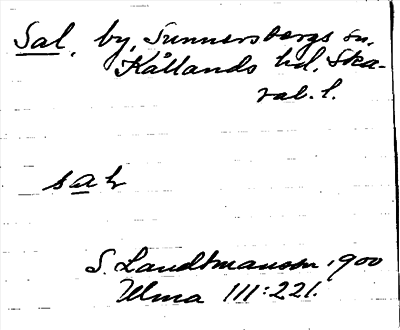 Sal, by, Sunnersbergs sn,
Kållands hd. Ska-
rab. l.
sah
S. Landtmanson 1900
Ulma 111:221.